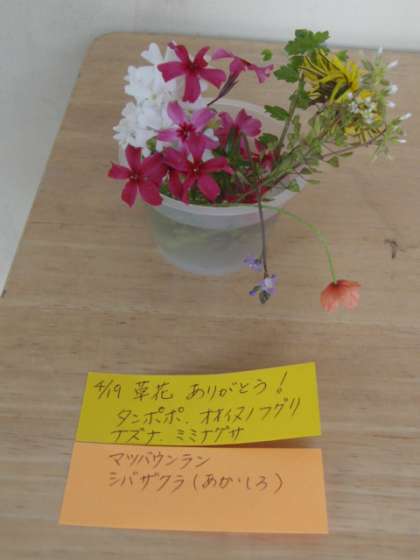 4/19 草花 ありがとう!
タンポポ、オオイヌノフグリ
ナズナ、ミミナグサ
マツバウンラン
シバザクラ(あか・しろ)